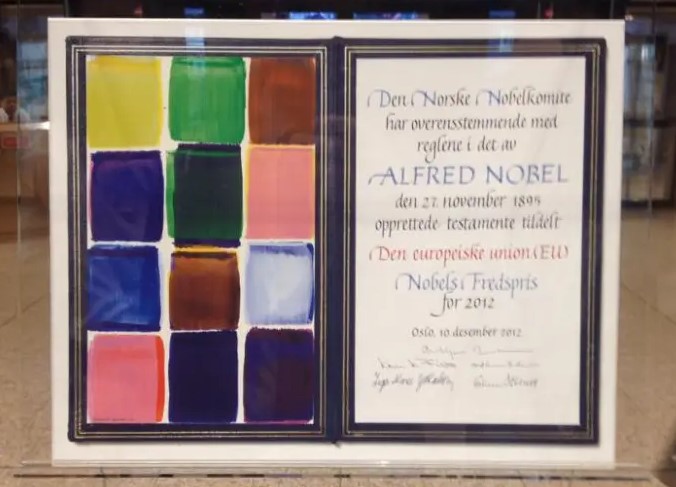 Den Norske Nobelkomite
har overensstemmende med
reglene i det av
ALFRED NOBEL
den 27. november 1895
opprettede testamente tildelt
Den europeiske union (EU)
Nobels Fredspris
for 2012
Oslo, 10 desember 2012